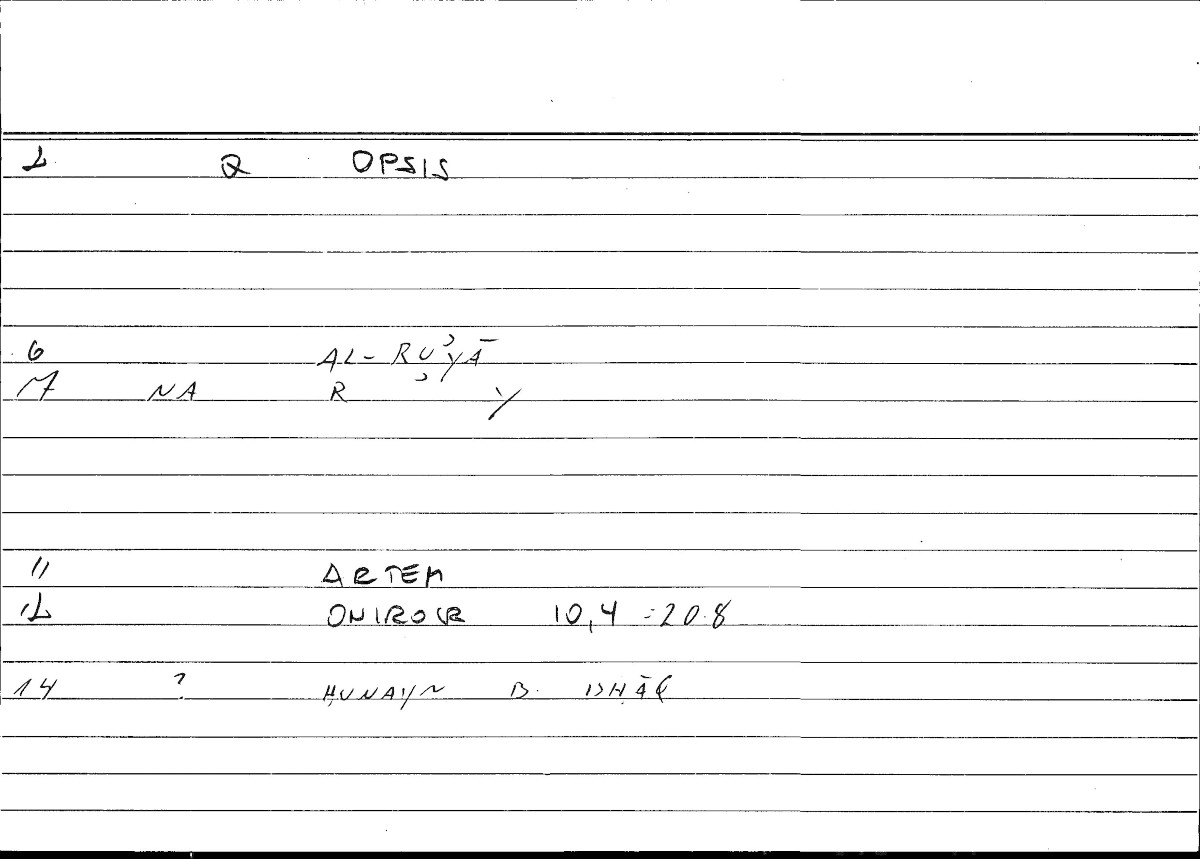 2 Q OPSIS
6 AL-RU'YĀ
7 NA R ' Y
11 ARTEM
12 ONIROCR 10,4 = 20.8
14 ? ḤUNAYN B. ISḤĀQ